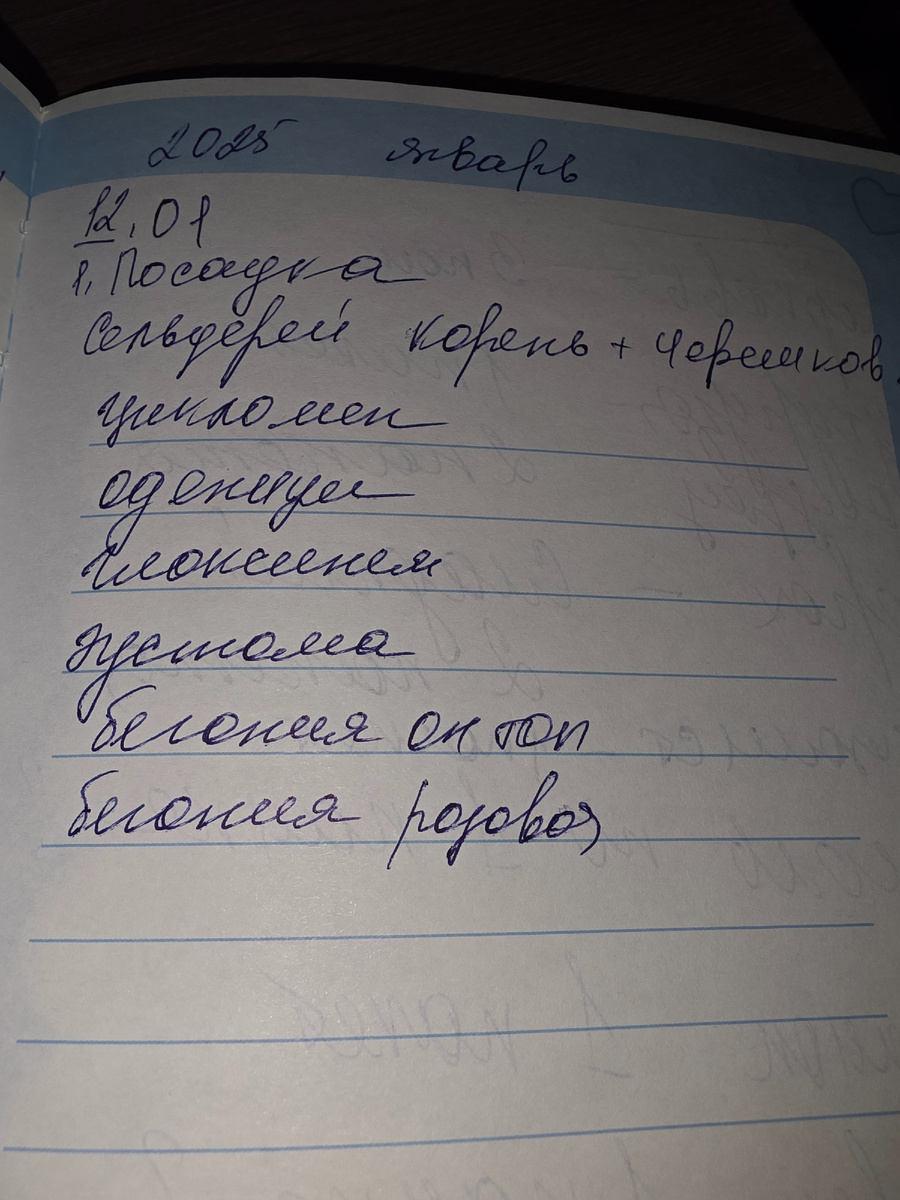 2025 январь
12.01
1. Посадка
Сельдерей корень + черешков.
цикломен
одениум
глоксинем
эустома
бегония он топ
бегония розовая